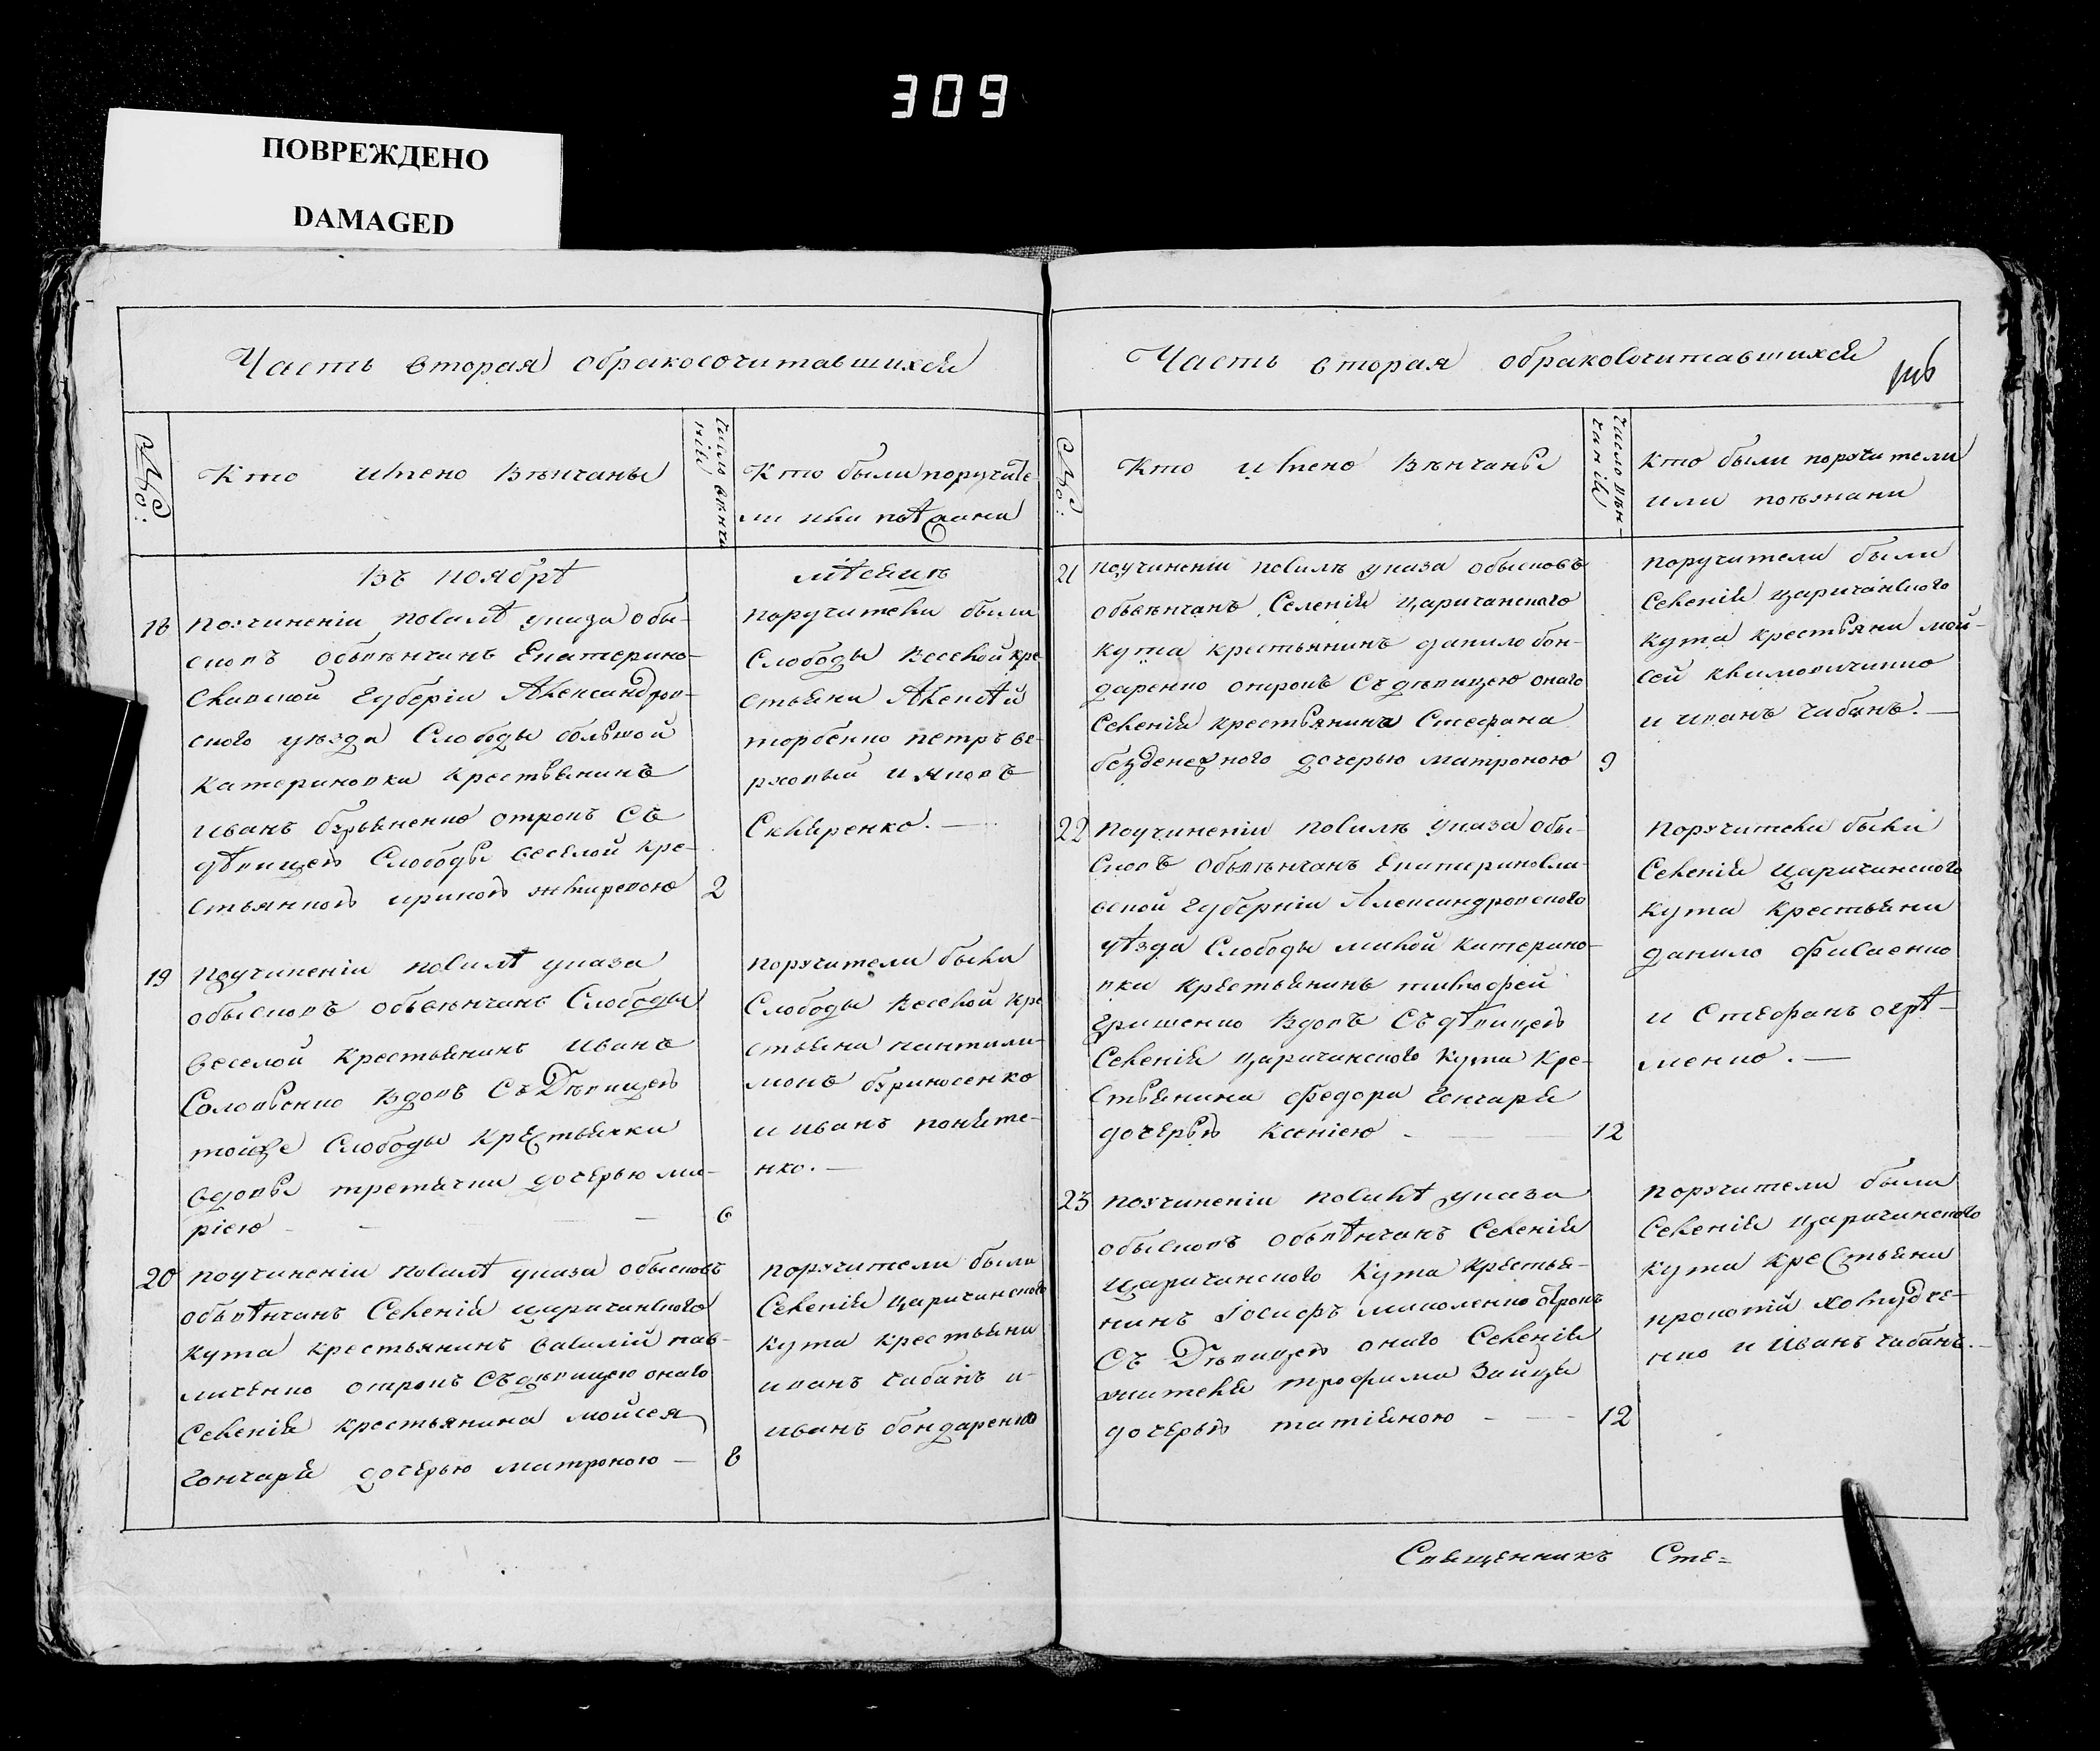 309
ПОВРЕЖДЕНО
DAMAGED
Часть вторая обракосочитавшихся
№:
Кто икемъ Вѣнчаны
число вѣнча
нія
Кто были поручите
ли или поѣзжани
Въ ноябрѣ
мѣсяцѣ
18 поучиненіи посилѣ указа обы-
сковъ объвѣнчанъ Екатерино-
славской Губеріи Александров-
ского уѣзда Слободы большой
катериновки крестьянинъ
иванъ отрокъ Съ
дѣвицею Слободы веселой кре-
стьянкою ириною 2
поручители были
Слободы Веселой кре
стьяни Алексѣй
торбенко петръ ве-
рховый и яковъ
Скляренко.
19 поучиненіи посилѣ указа
обысковъ объвѣнчанъ Слободы
веселой крестьянинъ иванъ
Соловьенко вдовъ Съ Дѣвицею
тойже Слободы крестьянки
вдовы третячки дочерью ма-
ріею 6
поручители были
Слободы Веселой кре
стьяна пантили-
монъ
и иванъ
нко.
20 поучиненіи посилѣ указа обысковъ
объвѣнчанъ Селенія царичанского
кута крестьянинъ василій пав-
личенко отрокъ Съ дѣвицею онаго
Селенія крестьянина мойсея
гончаря дочерью матроною 8
поручители были
Селенія царичанского
кута крестьяни
иванъ чабанъ и
иванъ бондаренко
Часть вторая обракосочитавшихся
№:
Кто икемъ Вѣнчаны
число вѣн-
чанія
Кто были поручители
или поѣзжани
21 поучиненіи посилѣ указа обысковъ
объвѣнчанъ Селенія царичанского
кута кристьянинъ данило бон-
даренко отрокъ Съ дѣвицею онаго
Селенія крестьянина Стефана
безденежного дочерью матроною 9
поручители были
Селенія царичанского
кута крестьяни мой-
сей
и иванъ чабанъ.
22 поучиненіи посилѣ указа обы-
сковъ объвѣнчанъ Екатеринosла-
вской губерніи Александровского
уѣзда Слободы малой катерино-
вки крестьянинъ тимофей
гришенко вдовъ Съ дѣвицею
Селенія царичанского кута кре-
стьянина федора гончаря
дочерью ксеніею 12
поручители были
Селенія царичанского
кута крестьяни
данило
и Стефанъ
менко.
23 поучиненіи посилѣ указа
обысковъ объвѣнчанъ Селенія
царичанского кута крестья-
нинъ Іосифъ отрокъ
Съ Дѣвицею онаго Селенія
жителя трофима Зайця
дочерью татіяною 12
поручители были
Селенія царичанского
кута крестьяни
прокопій
нко и иванъ чабанъ.
Священникъ Сте=